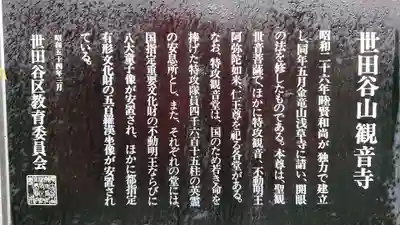 世田谷山観音寺
昭和二十六年睦賢和尚が独力で建立
し、同年五月金竜山浅草寺に請い、開眼
の法を修したものである。本尊は、聖観
世音菩薩で、ほかに特攻観音、不動明王
阿弥陀如来、仁王尊を祀る各堂がある。
なお、特攻観音堂は、国のため若き命を
捧げた特攻隊員四千六百十五柱の英霊
の安息所とし、また、それぞれの堂には、
国指定重要文化財の不動明王ならびに
八大童子像が安置され、ほかに都指定
有形文化財の五百羅漢坐像が安置され
ている。
昭和五十四年三月
世田谷区教育委員会